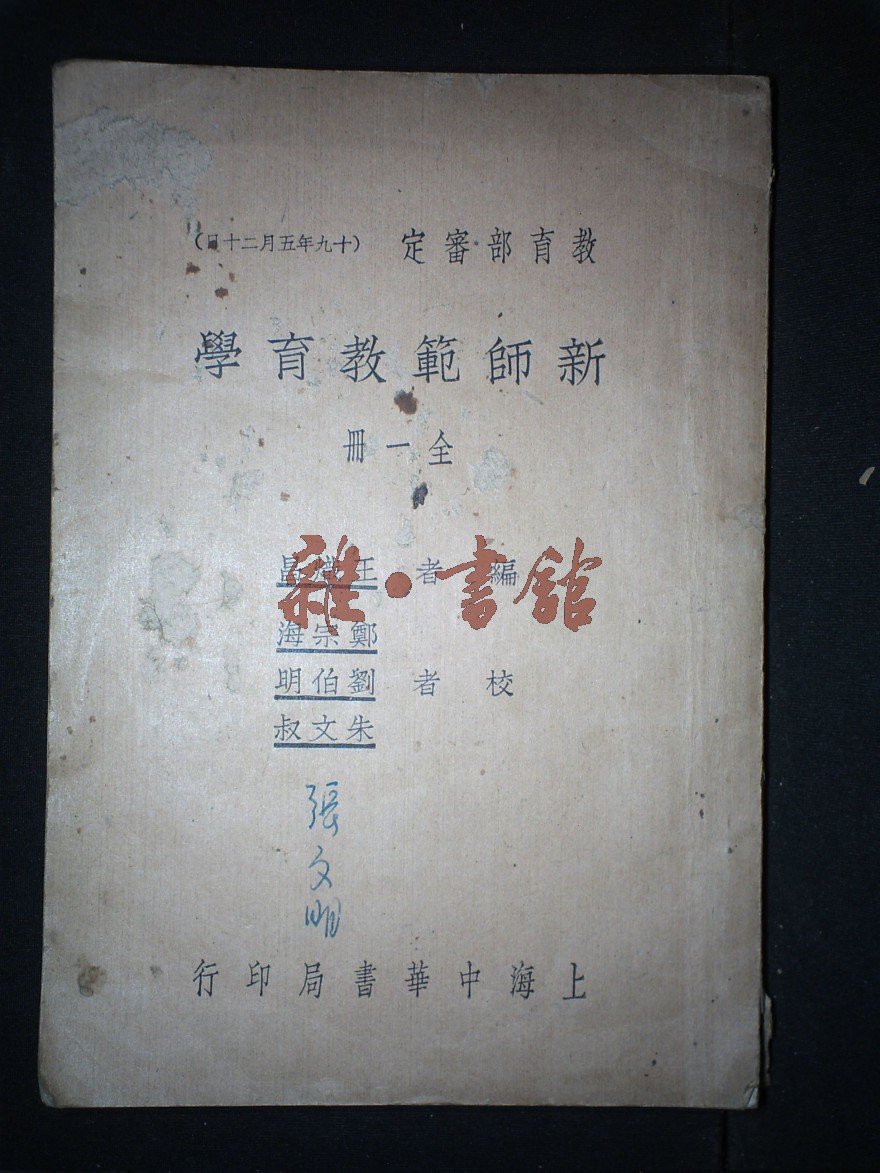 教育部審定 (十九年五月二十日)
新師範教育學
全一冊
編者 王熾昌
鄭宗海
校者 劉伯明
朱文叔
張文明
上海中華書局印行
雜·書館